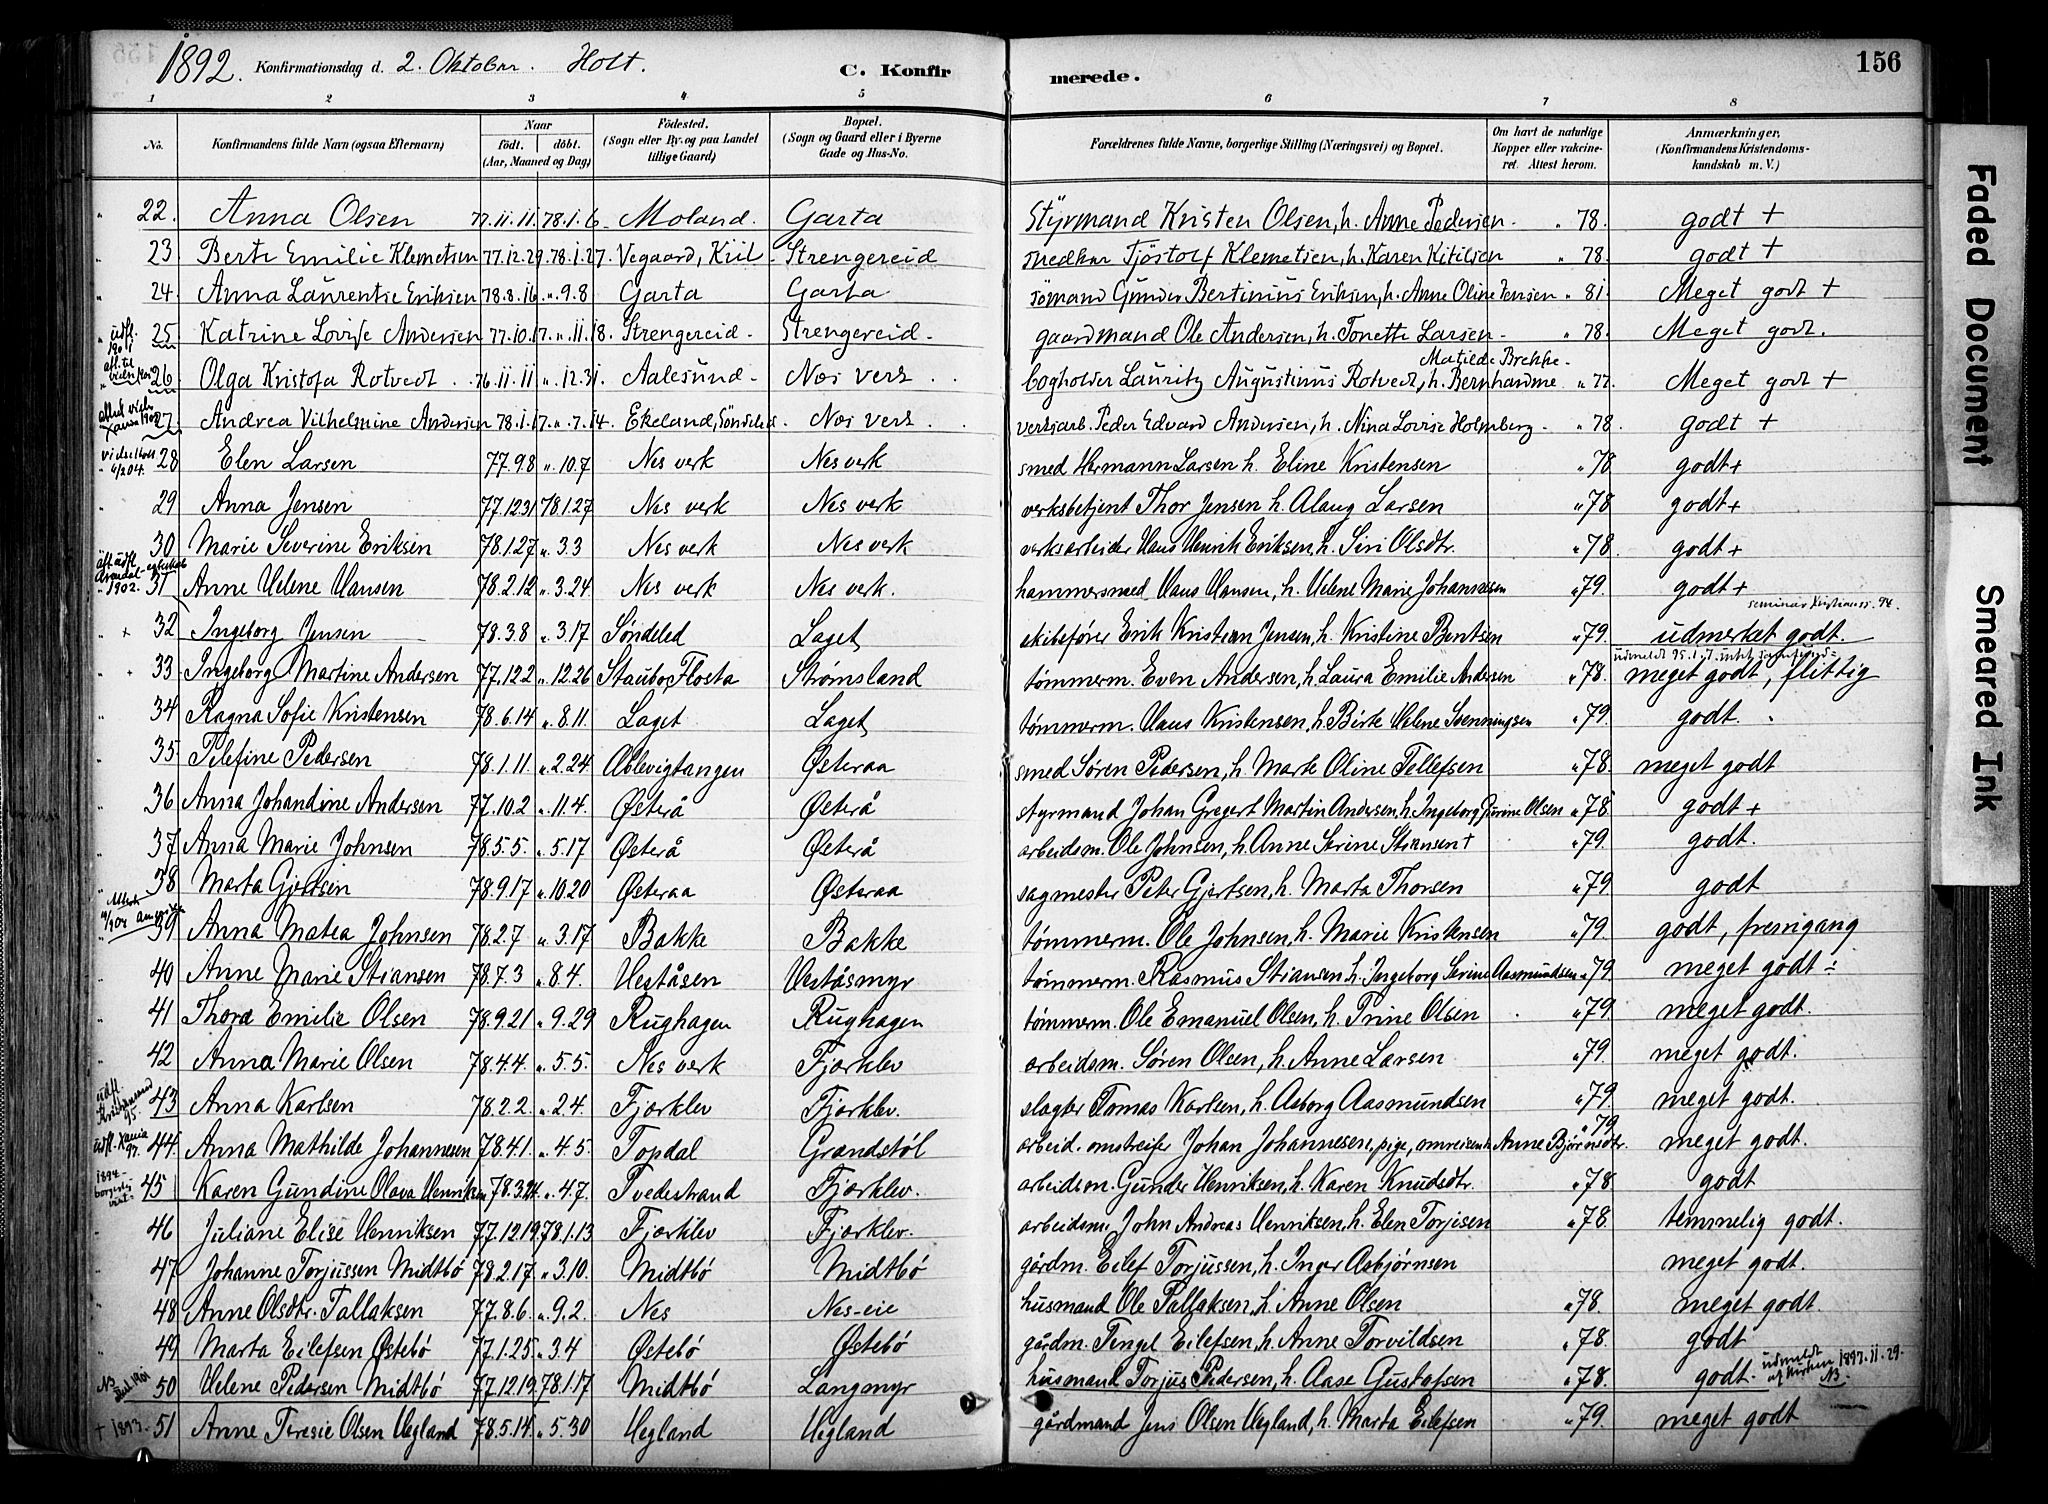 1892. Konfirmationsdag d. 2. Oktober. Holt. C. Konfir merede. 156
1 2 3 4 5 6 7 8
No. Konfirmandens fulde Navn (ogsaa Efternavn) Naar födt. döbt. (Aar, Maaned og Dag) Födested. (Sogn eller By, og paa Landet tillige Gaard) Bopæl. (Sogn og Gaard eller i Byerne Gade og Hus-No. Forældrenes fulde Navne, borgerlige Stilling (Næringsvei) og Bopæl. Om havt de naturlige Kopper eller vakcineret. Attest herom. Anmærkninger. (Konfirmandens Kristendomskundskab m. V.)
22. Anna Olsen 77.11.11. 78.1.6 Moland. Garta Styrmand Kristen Olsen, h. Anne Pedersen - " 78. godt +
23 Berte Emilie Klemetsen 77.12.29. 78.1.27. Vegaard, Kiil - Strengereid snedker Tjöstolf Klemetsen, h. Karen Kitilsen " 78. godt +
24. Anna Laurentse Eriksen 78.8.16 ".9.8 Garta Garta sömand Gunder Bertinius Eriksen, h. Anne Oline Jensen " 81. Meget godt +
udfl. 1901 25 Katrine Lovise Andersen 77.10.17. ".11.18. Strengereid - Strengereid - gaardmand Ole Andersen, h. Tonette Larsen - " 78. Meget godt.
26 Olga Kristofa Rotvedt 76.11.11 ".12.31. Aalesund - Næs verk bogholder Lauritz Augustinus Rotvedt, h. Bernhardine Matilde Brekke - " 77. Meget godt +
27. Andrea Vilhelmine Andersen 78.1.17 ".7.14. Ekeland, Söndeled - Næs verk verksarb. Peder Edvard Andersen, h. Nina Lovise Holmberg - " 78. godt +
28 Elen Larsen 77.9.8 ". 10.7 Nes verk Nes verk smed Hermann Larsen h. Eline Kristensen " 78 godt +
29 Anna Jensen 77.12.31 78.1.27 Nes verk Nes verk verksbetjent Thor Jensen h. Alaug Larsen " 78 godt +
30 Marie Severine Eriksen 78.1.27 ". 3.3 Nes verk Nes verk verksarbeider Hans Henrik Eriksen, h. Siri Olsdtr. " 78. godt +
31 Anne Helene Hansen 78.2.12 ". 3.24. Nes verk Nes verk. hammersmed Hans Hansen, h. Helene Marie Johannesen " 79. godt +
+ 32 Ingeborg Jensen 78.3.8 ". 3.17 Søndeled Laget skibsfører Erik Kristian Jensen, h. Kristine Bentsen " 79. udmerket godt.
+ 33 Ingeborg Martine Andersen 77.12.2 ". 12.26 Staubo, Flosta Strømsland tømmerm. Even Andersen, h. Laura Emilie Andersen " 78. meget godt, flittig
34 Ragna Sofie Kristensen 78.6.14 ". 8.11. Laget Laget tømmerm. Hans Kristensen, h. Birte Helene Svenningsen " 79 godt.
35 Pelefine Pedersen 78.1.11. ". 2.24. Ablevigtangen Østeraa smed Søren Pedersen, h. Marte Oline Tellefsen " 78. meget godt
36 Anna Johandine Andersen 77.10.2 ". 11.4. Østerå Østerå styrmand Johan Gregert Martin Andersen, h. Ingeborg Gurine Olsen " 78 godt +
37 Anna Marie Johnsen 78.5.5. ". 5.17 Østerå Østerå arbeidsm. Ole Johnsen, h. Anne Serine Stiansen + " 79. godt.
38 Marta Gjertsen 78.9.17 ". 10.20 Østeraa Østeraa sagmester Peter Gjertsen, h. Marta Thorsen " 79 godt
39 Anna Matea Johnsen 78.2.7 ". 3.17 Bakke Bakke tømmerm. Ole Johnsen, h. Marie Kristensen " 79. godt, fremgang
40 Anne Marie Stiansen 78.7.3 ". 8.4. Veståsen Veståsmyr tømmerm. Rasmus Stiansen h. Ingeborg Serine Aasmundsen " 79 meget godt
41 Thora Emilie Olsen 78.9.21 ". 9.29 Rughagen Rughagen tømmerm. Ole Emanuel Olsen, h. Trine Olsen " 79 meget godt.
42 Anna Marie Olsen 78.4.4. ". 5.5. Nes verk Fjorklev arbeidsm. Søren Olsen, h. Anne Larsen " 79 meget godt.
udfl. Kristiansand 95. 43 Anna Karlsen 78.2.2. ". 2.4. Fjorklev Fjorklev. slagter Tomas Karlsen, h. Asborg Aasmundsen " 79. meget godt.
udfl. Xania 97. 44. Anna Mathilde Johannesen 78.4.1. ". 4.5. Topdal Grandstøl arbeid. omstreifer Johan Johannesen, pige, omreisende Anne Bjørnsdtr. " 79 meget godt.
45 Karen Gundine Olava Henriksen 78.3.24 ". 4.7. Tvedestrand Fjorklev. arbeidsm. Gunder Henriksen, h. Karen Knudsdtr. " 78 godt
46 Juliane Elise Henriksen 77.12.19. 78.1.13 Fjorklev Fjorklev. arbeidsm. John Andreas Henriksen, h. Elen Torjisen " 78. temmelig godt.
47 Johanne Torjussen Midtbö 78.2.17 ". 3.10. Midtbö Midtbö gårdm. Eilef Torjussen, h. Inger Asbjørnsen meget godt.
48 Anne Olsdtr. Tallaksen 77.8.6. ". 9.2. Nes Nes-eie husmand Ole Tallaksen, h. Anne Olsen " 78. meget godt.
49 Marta Eilefsen Østebö 77.1.25 ". 3.4 Østebö Østebö gårdm. Tengel Eilefsen, h. Anne Torvildsen " 78. godt
50 Helene Pedersen Midtbö 77.12.19. 78.1.17 Midtbö Langmyr husmand Torjus Pedersen, h. Aase Gustafsen " 78. godt. udmeldt af kirken 1897.11.29. NB
+ 1893. 51 Anne Teresie Olsen Hegland 78.5.14. ". 5.30 Hegland Hegland gårdmand Jens Olsen Hegland, h. Marta Eilefsen " 79. meget godt
Faded Document
Smeared Ink